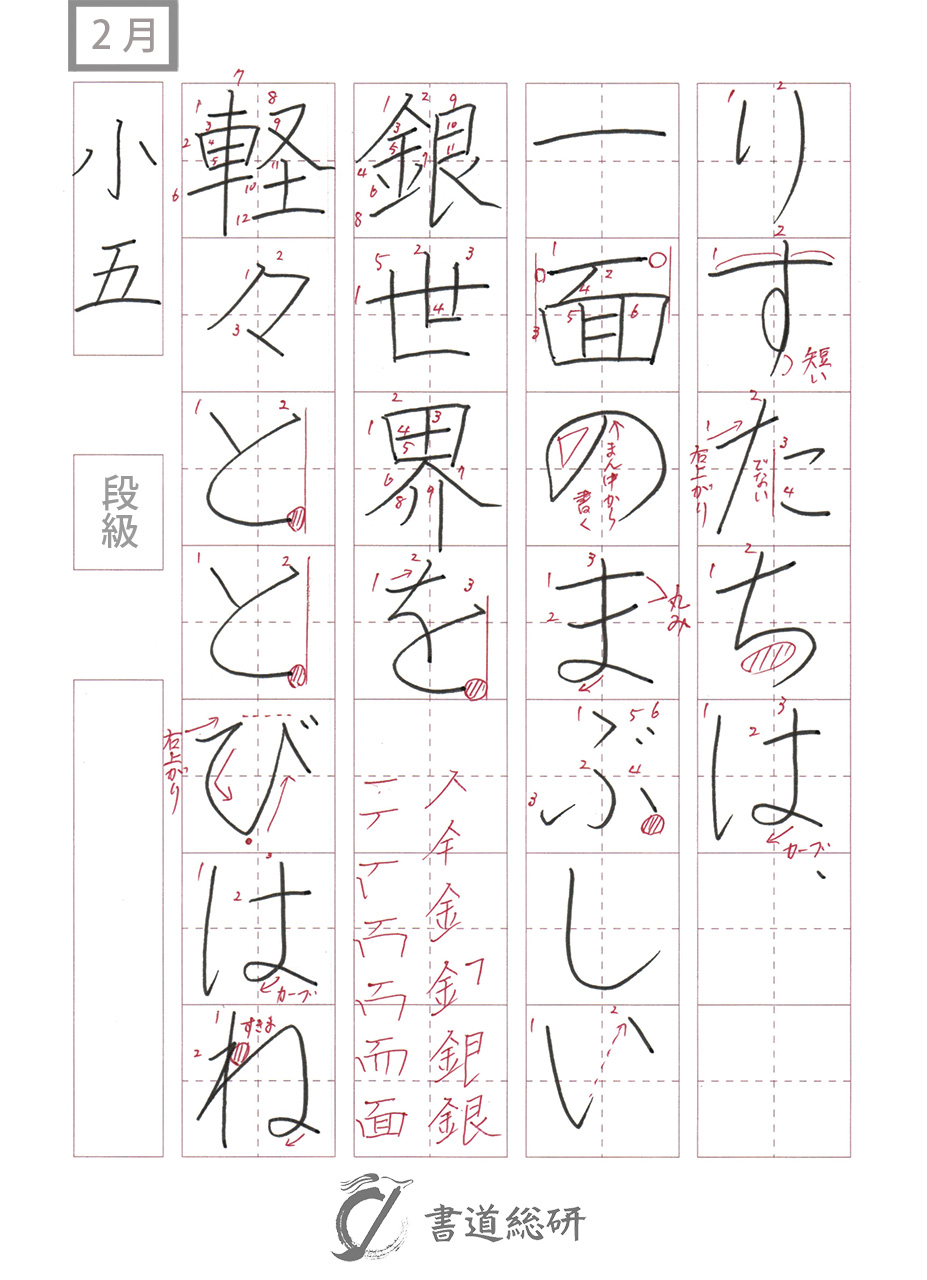 2月
りすたちは、
一面のまぶしい
銀世界を
軽々ととびはね
小五
段級
短い
右上がり
でない
カーブ
まん中から
書く
丸み
右上がり
カーブ
すきま
書道総研